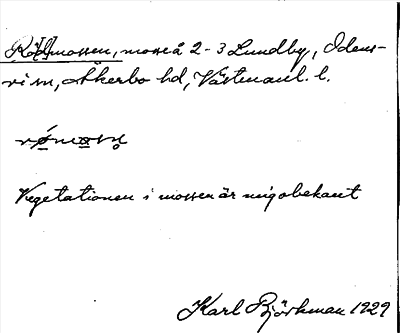 Rödmossen, mosse å 2-3 Lundby, Odens-
vi sn, Åkerbo hd, Västmanl. l.
Vegetationen i mossen är mig obekant
Karl Björkman 1929